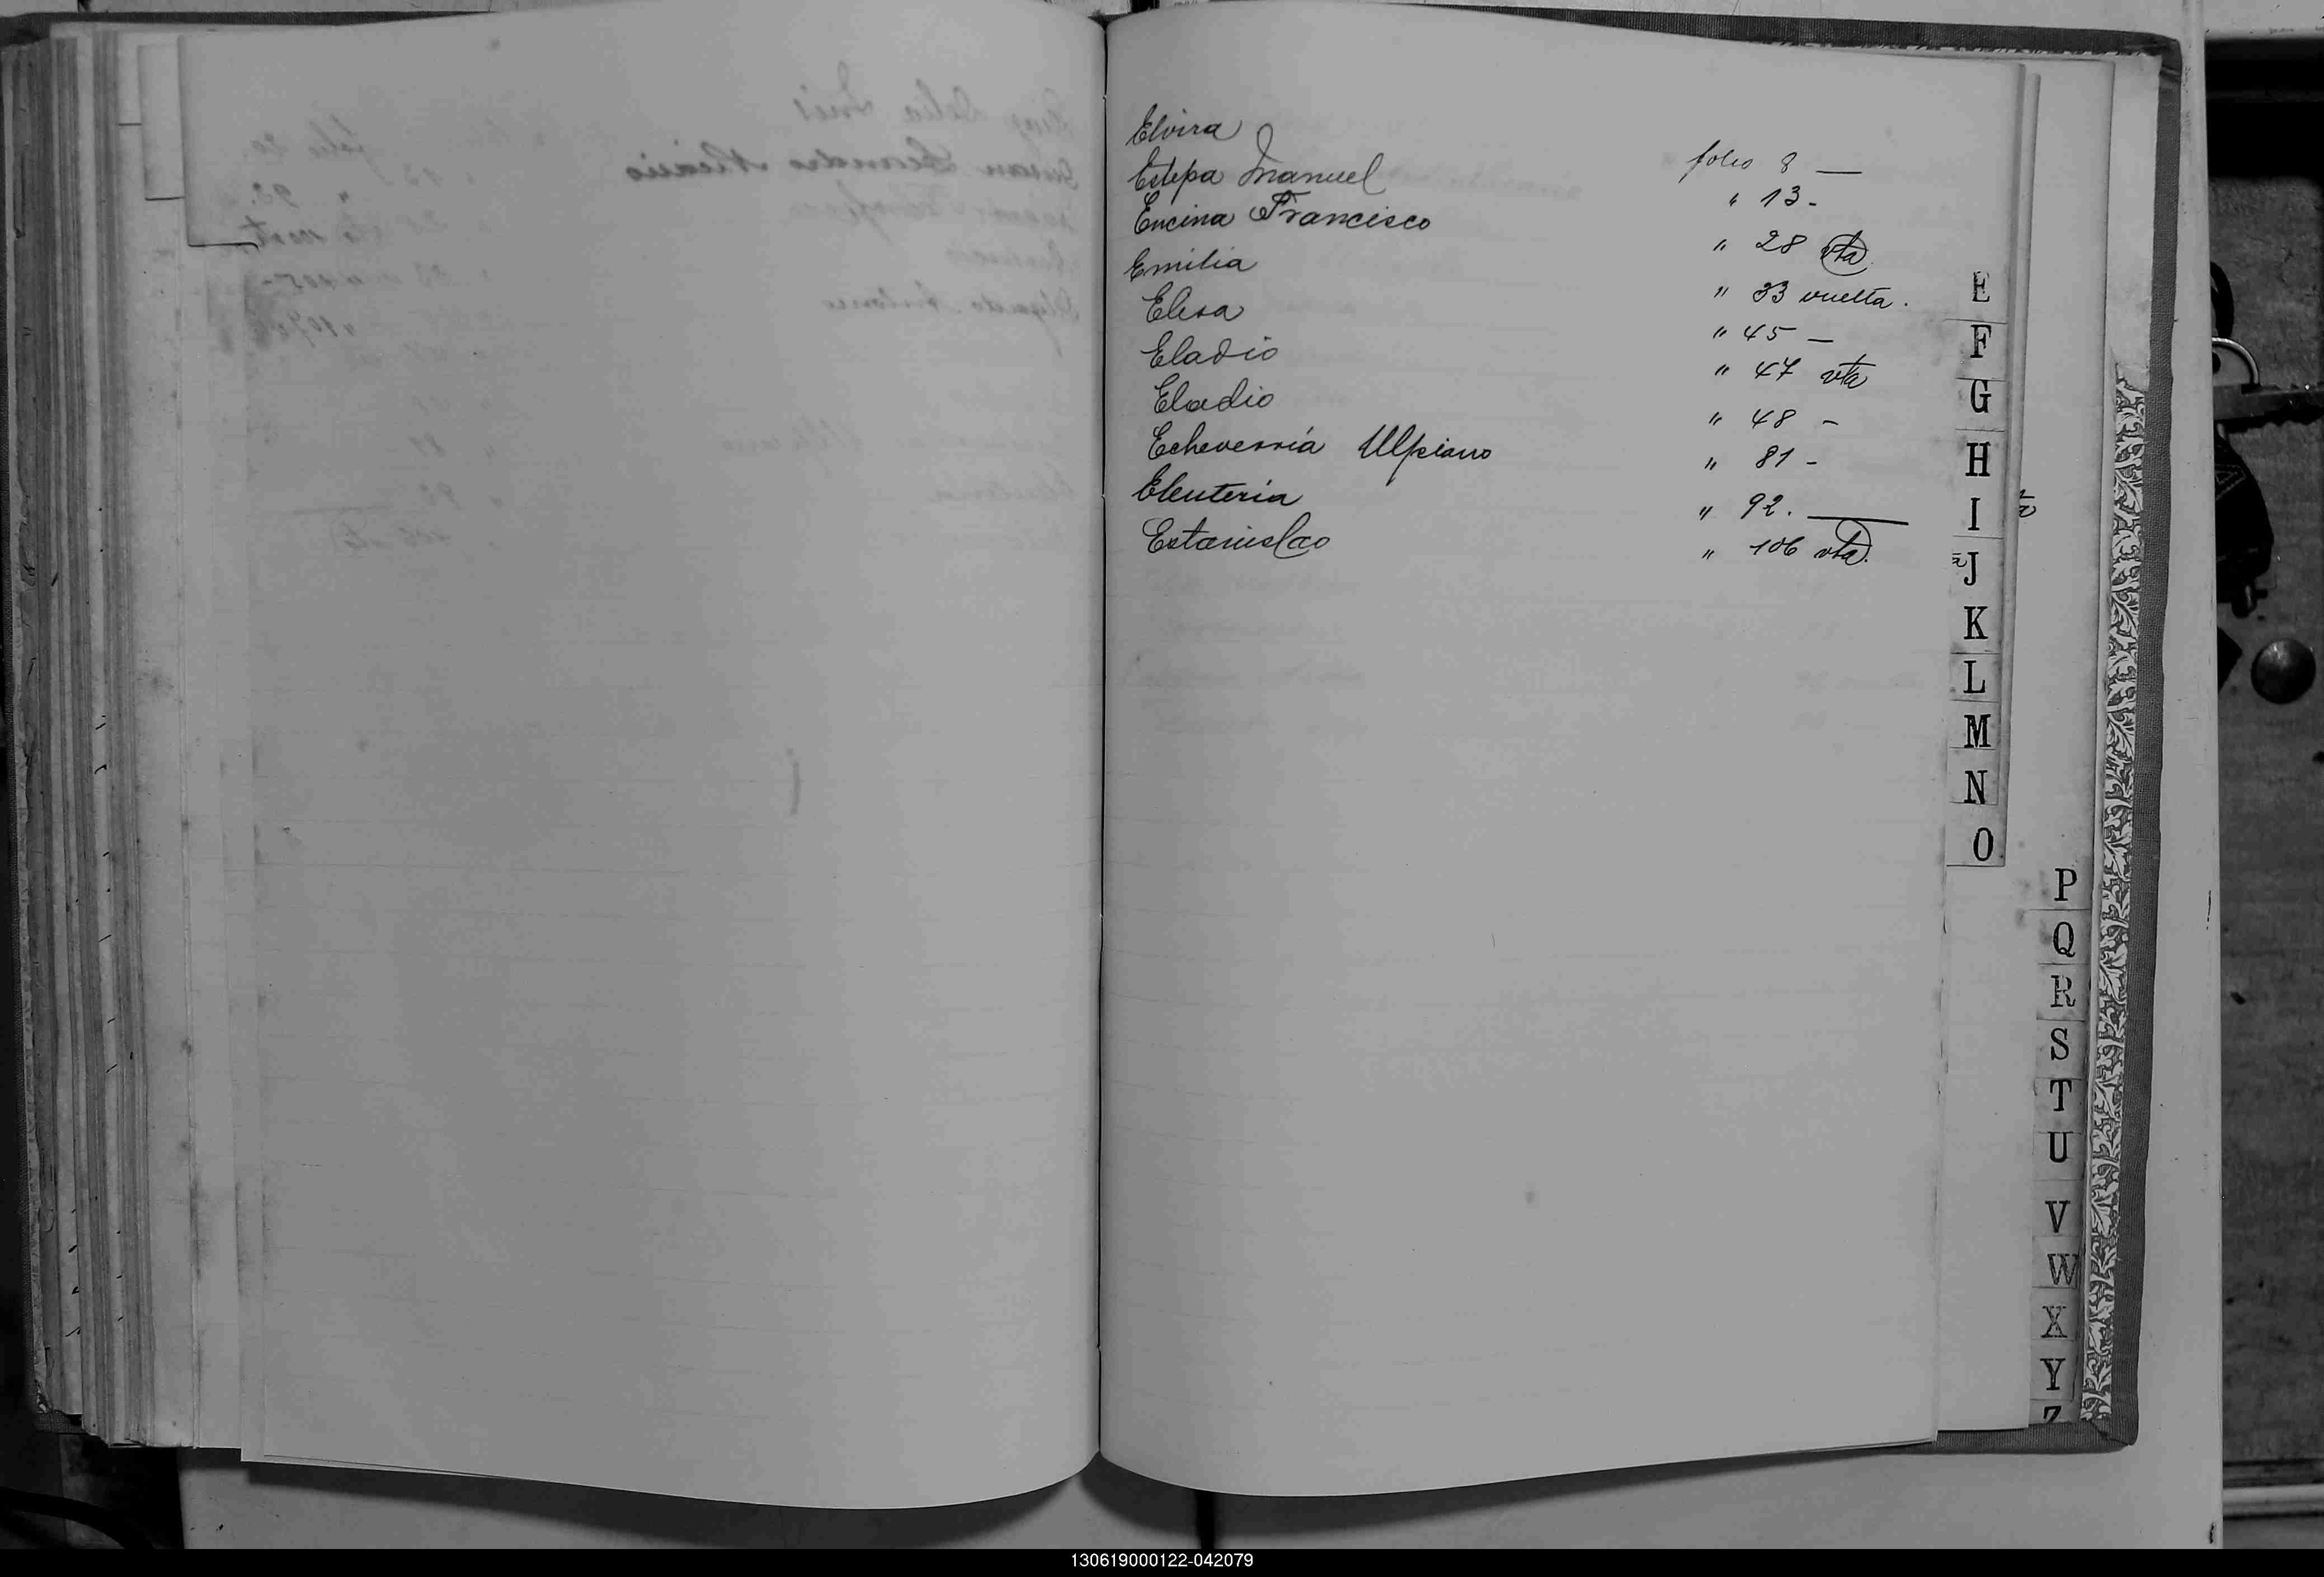 Elvira folio 8 —
Estepa Manuel " 13 -
Encina Francisco " 28 vta
Emilia " 33 vuelta.
Elisa " 45 —
Eladio " 47 vta
Eladio " 48 -
Echeverría Ulpiano " 81 -
Eleuteria " 92. —
Estanislao " 106 vta.
E
F
G
H
I
J
K
L
M
N
O
P
Q
R
S
T
U
V
W
X
Y
Z
130619000122-042079